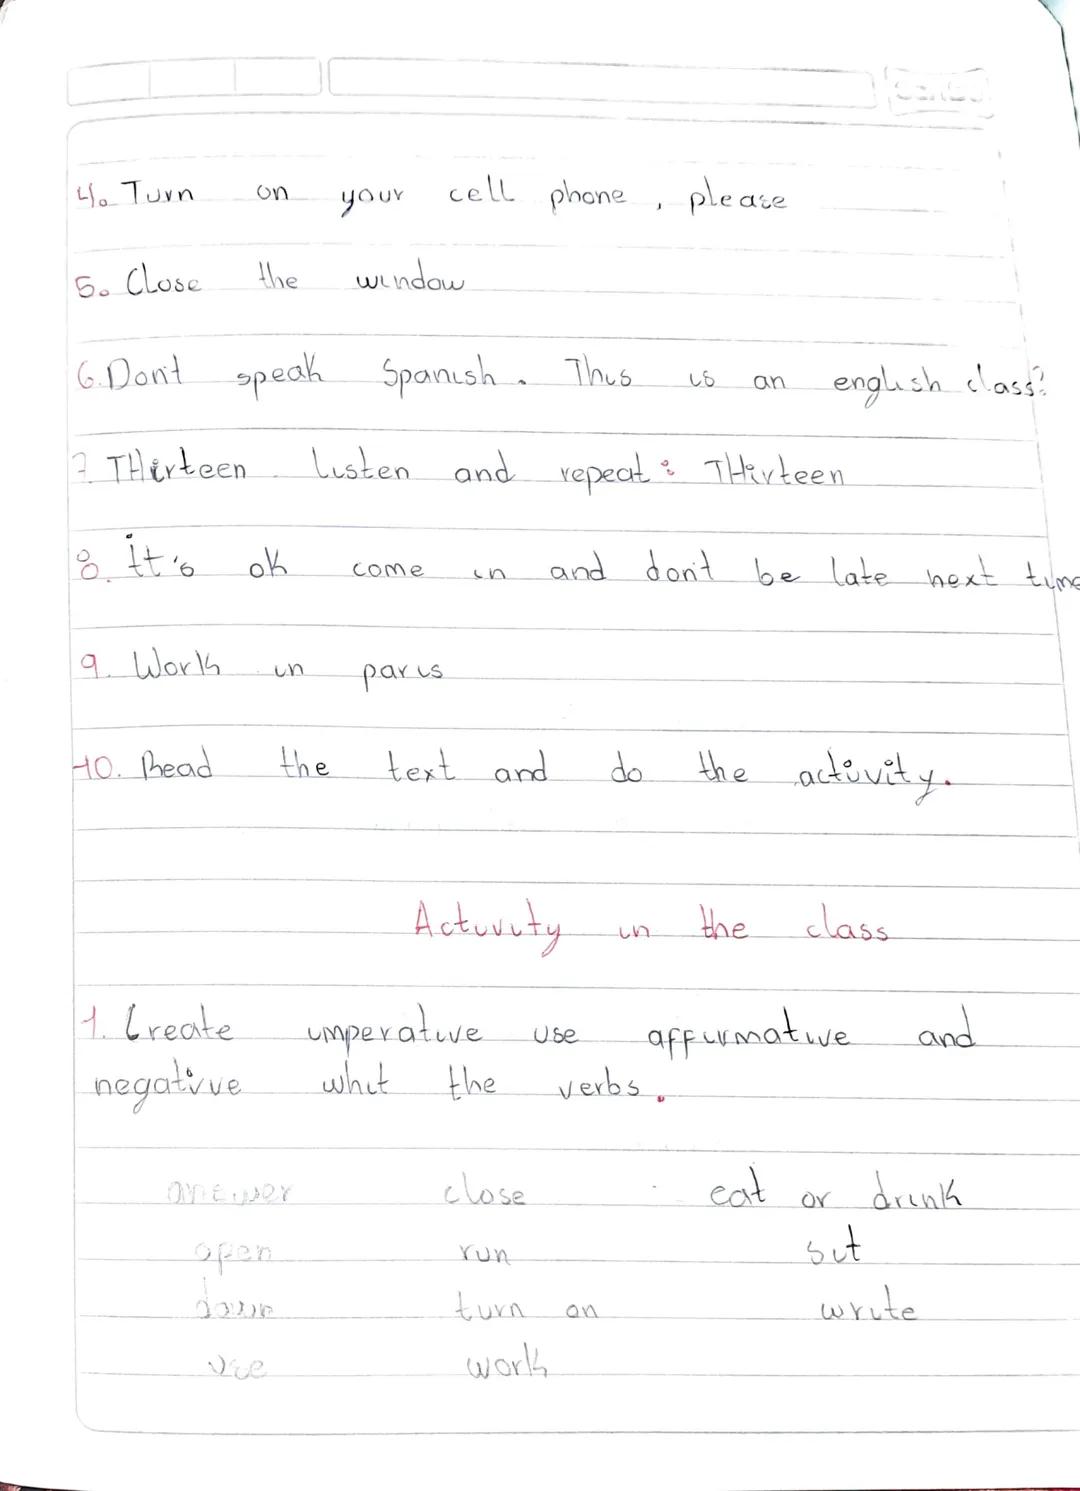 4. Turn on your cell phone, please
5. Close the window
6. Don't speak Spanish. This is an english class!
7. THirteen. Listen and repeat: THirteen
8. it's ok come in and don't be late next time
9. Work in paris
10. Read the text and do the activity.
Activity in the class
1. Create imperative use affirmative and
negative whit the verbs.
answer close eat or drink
open run sit
down turn on write
use work